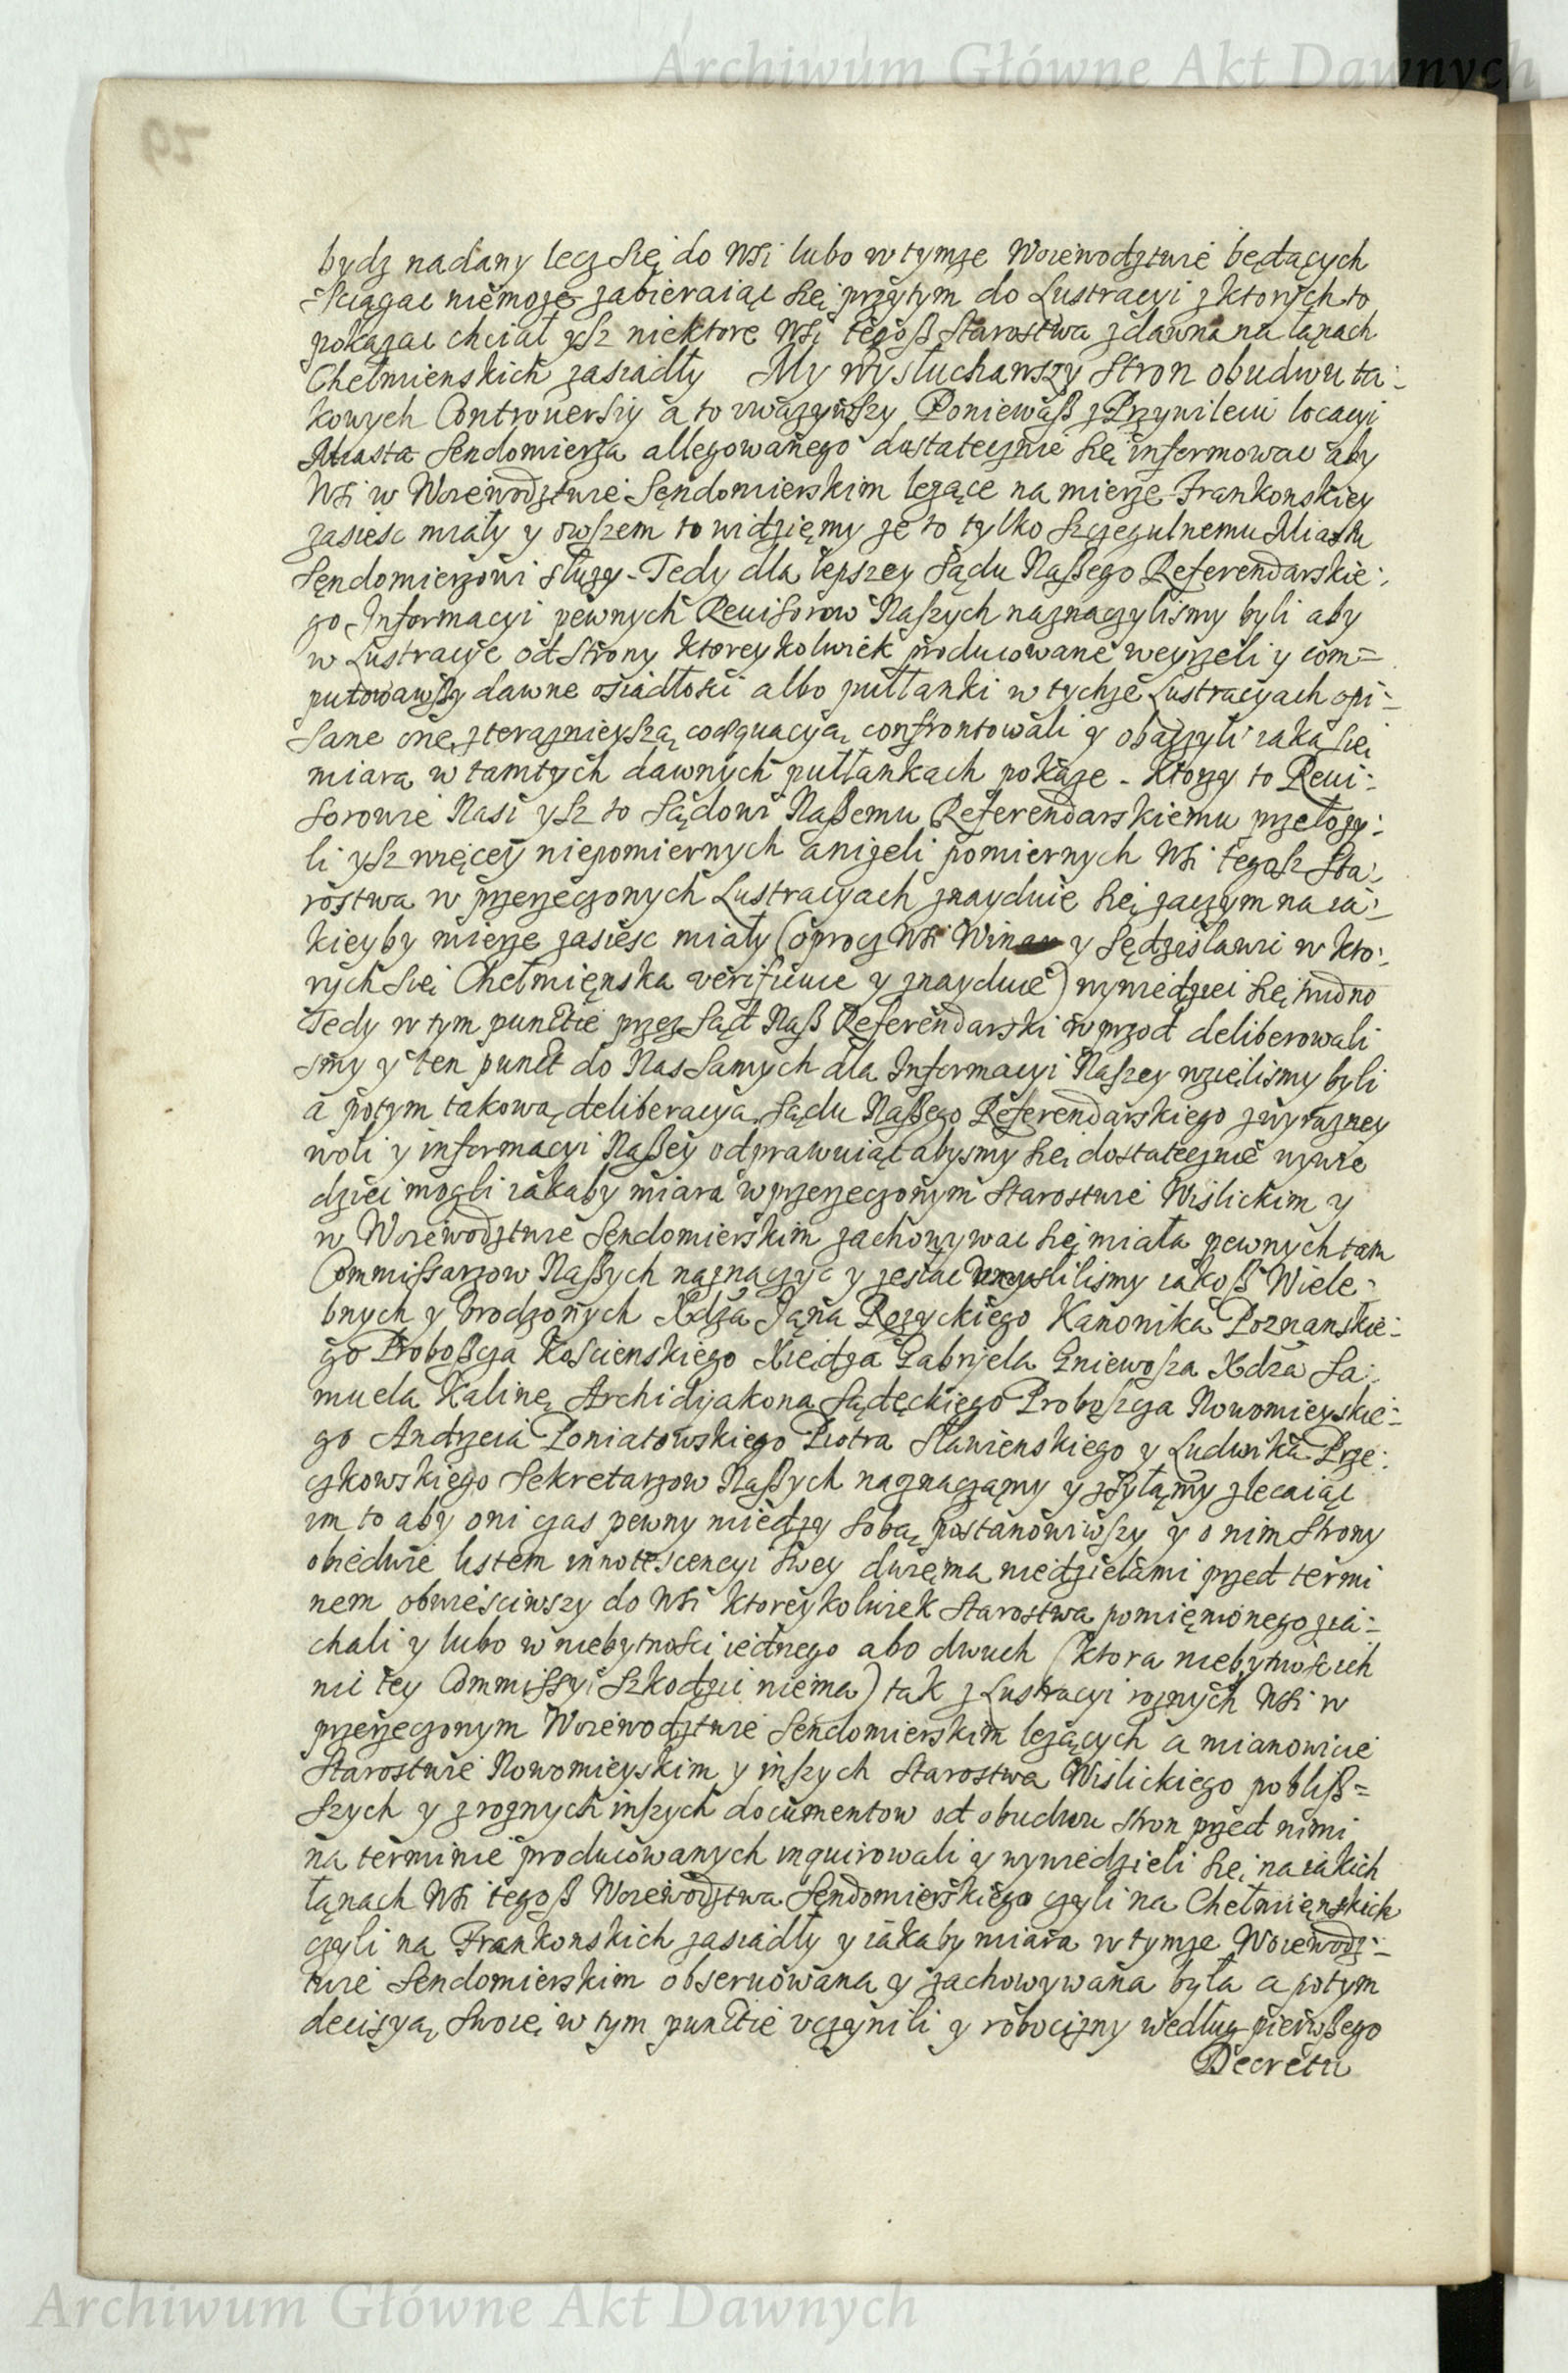 Archiwum Główne Akt Dawnych
79
bydz nadany lecz się do Wsi lubo w tymze Woiewodztwie będących
sciągac niemoze zabieraiąc się przytym do Lustracyi z ktorych to
pokazac chciał ysz niektore Wsi tegoß Starostwa zdawna na łąnach
Chełmienskich zasiadły My wysłuchawszy Stron obudwu ta:
kowych Controuersiy a to vwazywszy Poniewaß z Przywileiu locacyi
Miasta Sendomierza allegowanego dostatecznie się informowac aby
Wsi w Woiewodztwie Sęndomierskim lezące na mierze Frankonskiey
zasiesc miały y owszem to widzięmy ze to tylko szczegulnemu Miastu
Sęndomierzowi słuzy - Tedy dla lepszey Sądu Naßego Referendarskie:
go Informacyi pewnych Reuisorow Naszych naznaczylismy byli aby
w Lustracye od Strony ktoreykolwiek producowane weyrzeli y com=
putowawßy dawne osiadłosci albo pułłanki w tychze Lustracyach opi=
sane one z teraznieyszą coæquacyą confrontowali y obaczyli iaka się
miara w tamtych dawnych pułłankach pokaze - Ktorzy to Reui:
sorowie Nasi ysz to Sądowi Naßemu Referendarskiemu przełozy:
li ysz więcey niepomiernych anizeli pomiernych Wsi tegosz Sta:
rostwa w przerzeczonych Lustracyach znayduie się zaczym na ia:
kieyby mierze zasiesc miały (oprocz Wsi Winar y Sędzisławi w kto:
rych się Chełmięnska verifikuie y znayduie) wywiedziei się trudno
Tedy w tym punctie przez Sąd Naß Referendarski wprzod deliberowali
smy y ten punct do Nas Samych dla Informacyi Naszey wzielismy byli
a potym takową deliberacyą Sądu Naßego Referendarskiego z wyrazney
woli y informacyi Naßey odprawuiąc abysmy się dostatecznie wywie
dziei mogli iakaby miara w przerzeczonym Starostwie Wislickim y
w Woiewodztwie Sendomierskim zachowywac się miała pewnych tam
Commissarzow Naßych naznaczyc y zesłac umyslilismy iakoß Wiele:
bnych y Urodzonych Xdza Jąna Rozyckiego Kanonika Poznanskie:
go Proboßcza Koscienskiego Xiędza Gabryela Gniewosza Xdza Sa:
muela Kalinę Archidyakona Sądeckiego Proboszcza Nowomieyskie:
go Andrzeia Poniatowskiego Piotra Sławienskiego y Ludwika Prze:
czkowskiego Sekretarzow Naßych naznaczamy y zsyłąmy zlecaiąc
im to aby oni czas pewny miedzy sobą postanowiwszy y o nim Strony
obiedwie listem innotescencyi swey dwięma niedzielami przed termi
nem obwiesciwszy do Wsi ktoreykolwiek Starostwa pomięnionego zia:
chali y lubo w niebytnosci iednego abo dwuch (ktora niebytnosc ich
nic tey Commissyi szkodzic niema) tak z Lustracyi roznych Wsi w
przerzeczonym Woiewodztwie Sendomierskim lezących a mianowicie
Starostwie Nowomieyskim y inszych Starostwa Wislickiego pobliß=
szych y z roznych inszych documentow od obudwu stron przed nimi
na terminie producowanych inquirowali y wywiedzieli się na iakich
łąnach Wsi tegoß Woiewodztwa Sęndomierskiego czyli na Chełmięnskich
czyli na Frankonskich zasiadły y iakaby miara w tymze Woiewodz:
twie Sendomierskim obseruowana y zachowywana była a potym
decizyą swoię w tym punctie vczynili y robocizny według pierwßego
Decretu
Archiwum Główne Akt Dawnych